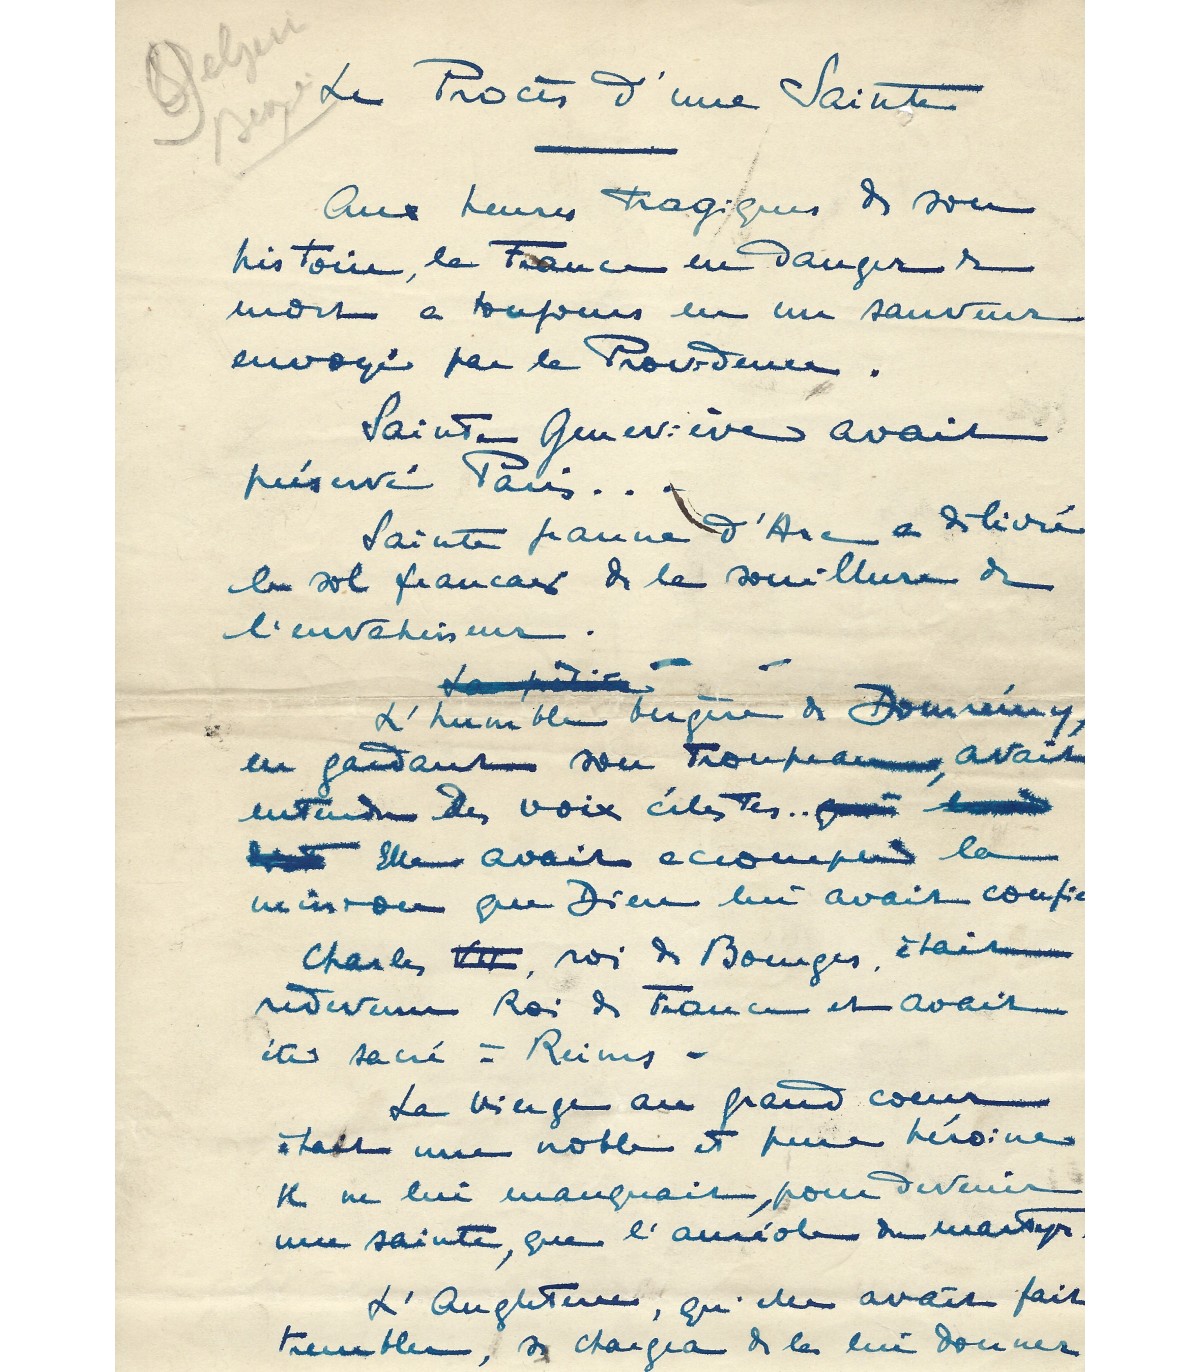 Le Procès d'une Sainte
Aux heures tragiques de son
histoire, la France en danger de
mort a toujours eu un sauveur
envoyé par la Providence.
Sainte Geneviève avait
préservé Paris...
Sainte Jeanne d'Arc a délivré
le sol français de la souillure de
l'envahisseur.
La petite
L'humble bergère de Domrémy,
en gardant son troupeau, avait
entendu des voix célestes.. qui
Elle avait accompli la
mission que Dieu lui avait confié
Charles VII, roi de Bourges, était
redevenu Roi de France et avait
été sacré à Reims -
La vierge au grand coeur
était une noble et pure héroïne
Il ne lui manquait, pour devenir
une sainte, que l'auréole du martyr.
L'Angleterre, qu'elle avait fait
trembler, se chargea de la lui donner